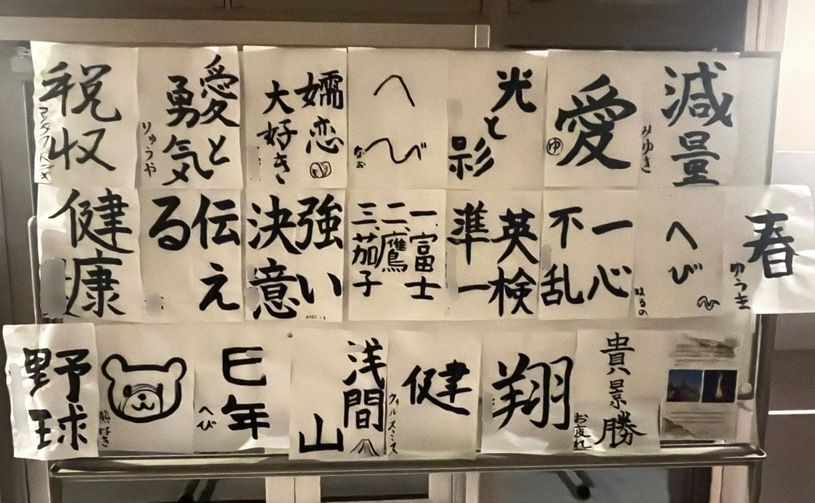 税収
愛と
勇気
りゅうや
嬬恋
大好き
へび
なお
光と
影
愛
ゆ
減量
みゆき
健康
伝え
る
強い
決意
一、富士
二、鷹
三、茄子
英検
準一
一心
不乱
へび
はるの
春
ゆうき
野球
巳年
へび
浅間
山
健
ウィルスミス
翔
貴景勝
お疲れ